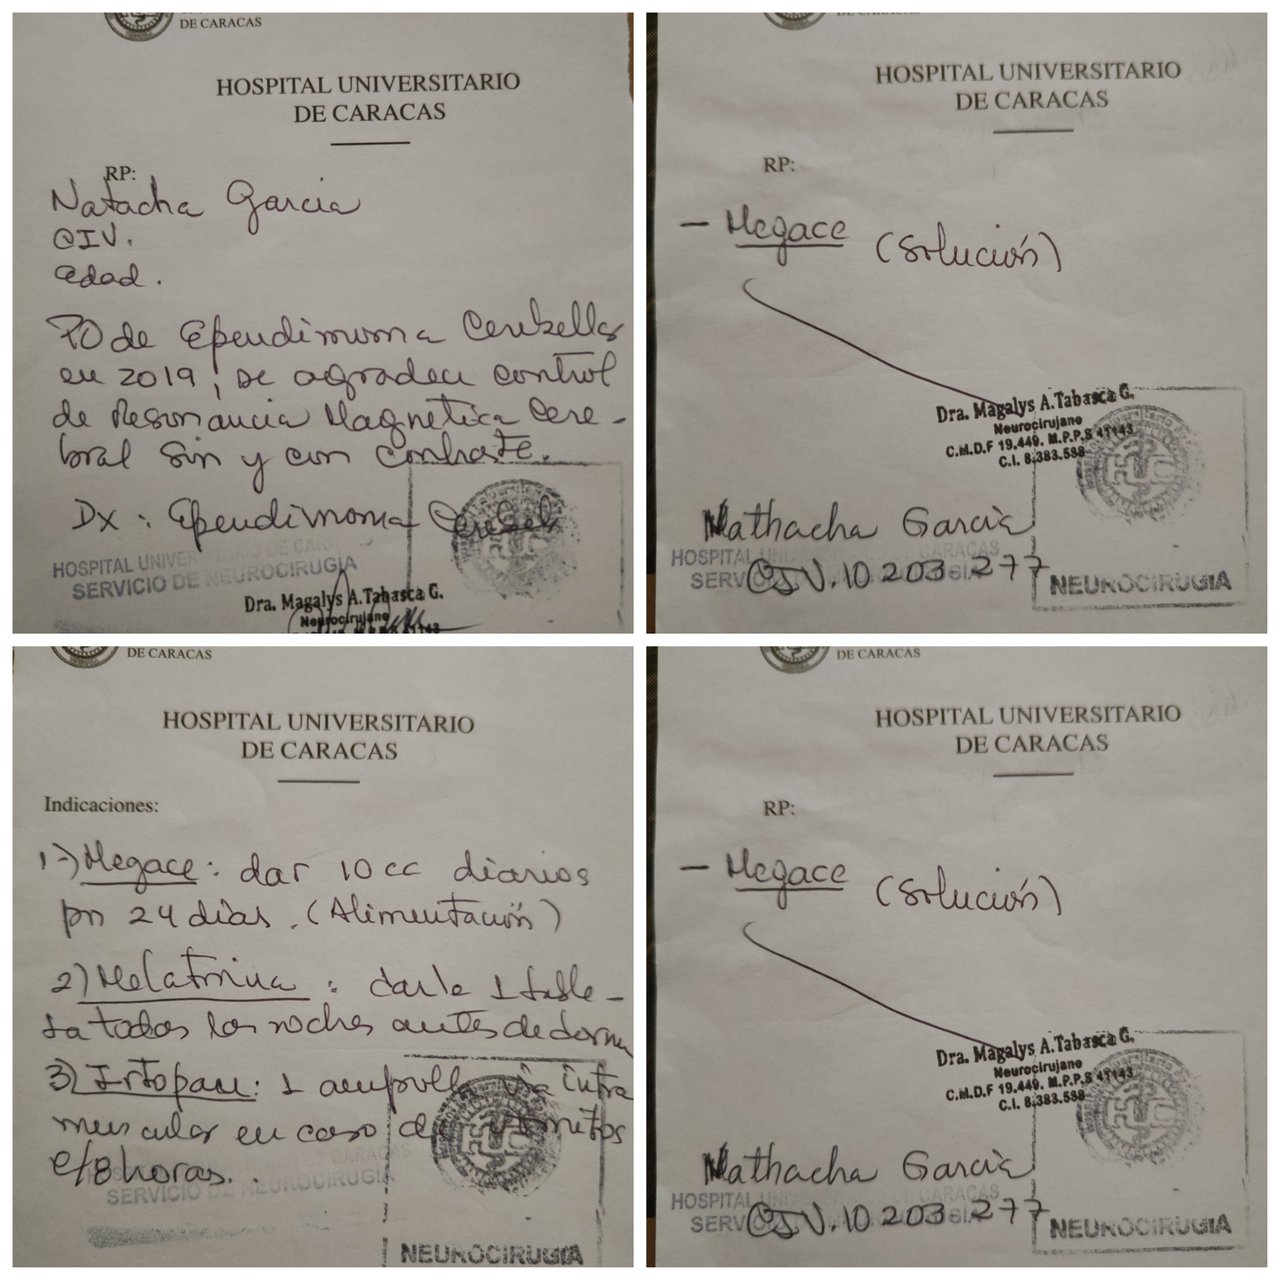 DE CARACAS
HOSPITAL UNIVERSITARIO
DE CARACAS
RP:
Natacha Garcia
CIV.
edad.
PO de Ependimoma Cerebellar
en 2019, se agradece control
de Resonancia Magnetica Cere-
bral sin y con contraste.
Dx: Ependimoma
HOSPITAL UNIVERSITARIO DE CARACAS
SERVICIO DE NEUROCIRUGIA
Dra. Magalys A. Tabasca G.
Neurocirujano
HOSPITAL UNIVERSITARIO
DE CARACAS
RP:
- Megace (solución)
Dra. Magalys A. Tabasca G.
Neurocirujano
C.M.D.F 19.449. M.P.P.S 41143
C.I. 8.383.588
Nathacha Garcia
CIV. 10 203 277
HOSPITAL UNIVERSITARIO DE CARACAS
NEUROCIRUGIA
DE CARACAS
HOSPITAL UNIVERSITARIO
DE CARACAS
Indicaciones:
1-) Megace: dar 10 cc diarios
por 24 dias. (Alimentación)
2) Melatonina: darle 1 table-
ta todas las noches antes de dormir
3) Irtopan: 1 ampolla via intra
muscular en caso de vomitos
c/8 horas.
CARACAS
SERVICIO DE NEUROCIRUGIA
NEUROCIRUGIA
DE CARACAS
HOSPITAL UNIVERSITARIO
DE CARACAS
RP:
- Megace (solución)
Dra. Magalys A. Tabasca G.
Neurocirujano
C.M.D.F 19.449. M.P.P.S 41143
C.I. 8.383.588
Nathacha Garcia
CIV. 10 203 277
HOSPITAL UNIVERSITARIO DE CARACAS
NEUROCIRUGIA